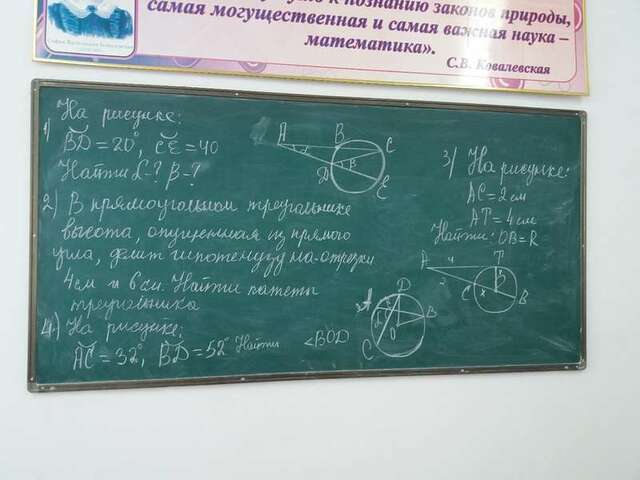 к познанию законов природы,
самая могущественная и самая важная наука –
математика».
С.В. Ковалевская
На рисунке:
1) BD = 20°, CE = 40
Найти α-? β-?
2) В прямоугольном треугольнике
высота, опущенная из прямого
угла, делит гипотенузу на отрезки
4см и 6см. Найти катеты
треугольника
4) На рисунке:
AC = 32°, BD = 52° Найти <BOD
A B C
D β E
3) На рисунке:
AC = 2 см
AT = 4 см
Найти: OB = R
A 4 T
2 C x B
D
B
O
C